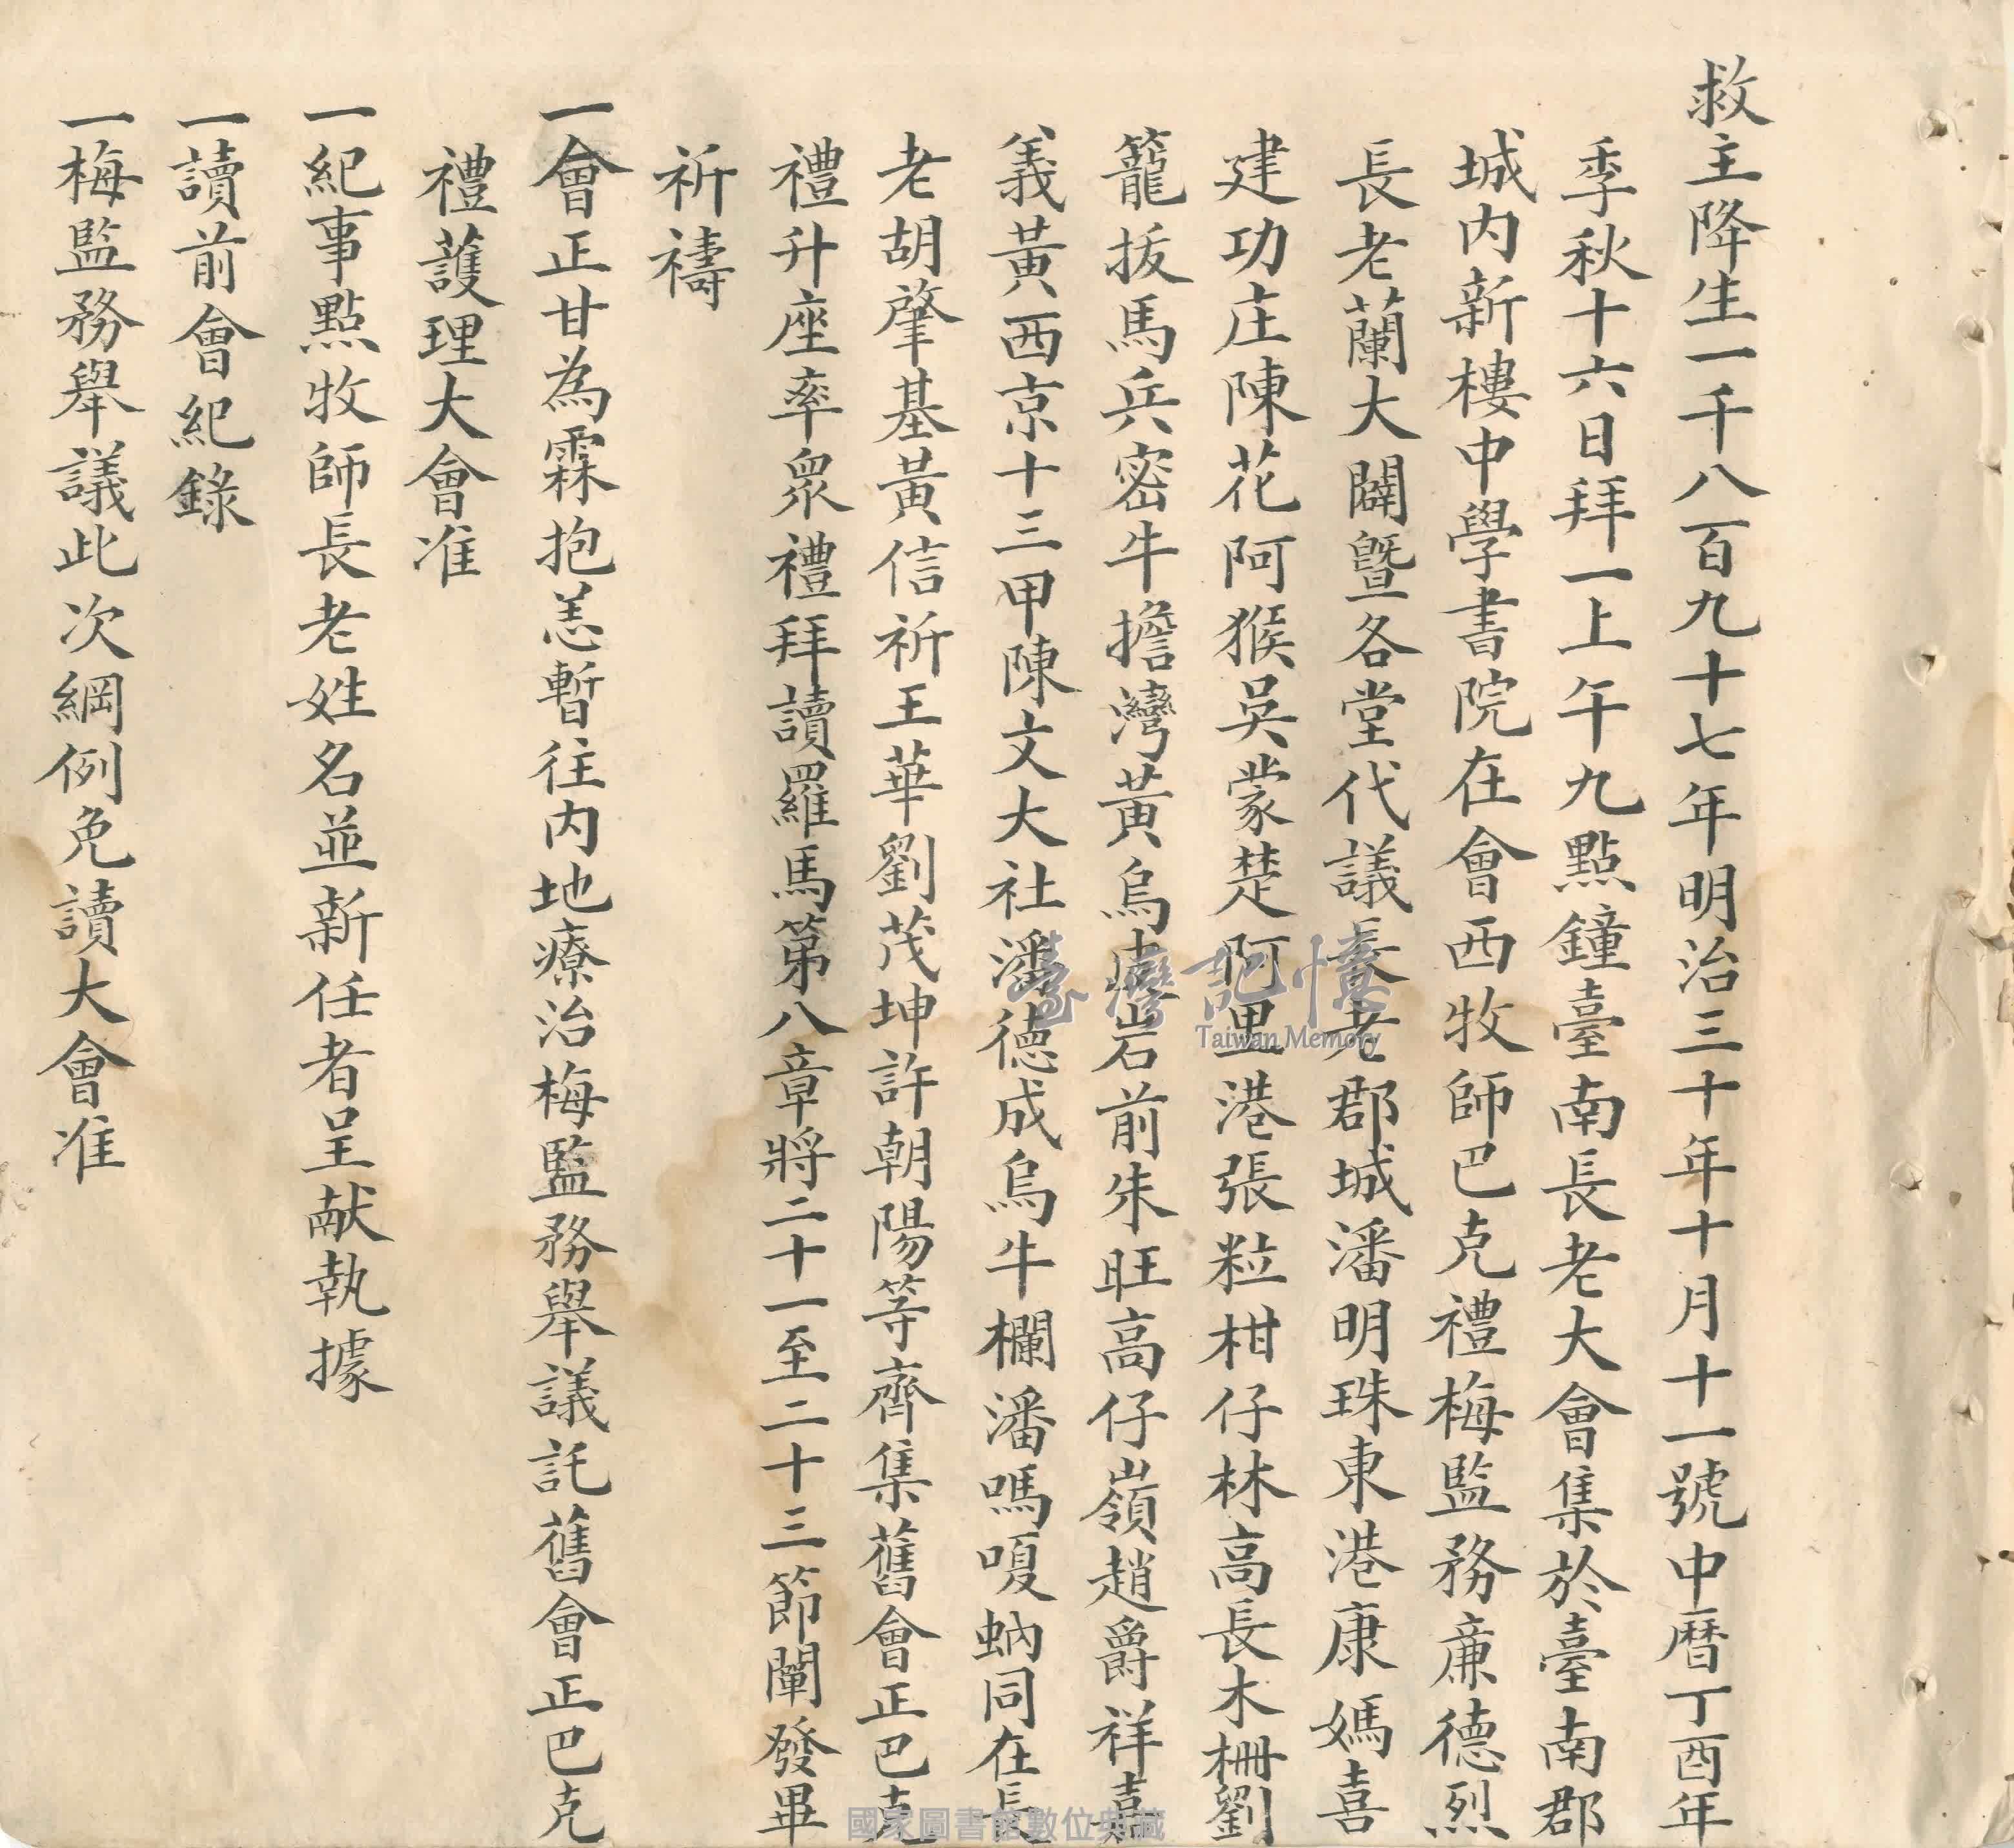 救主降生一千八百九十七年明治三十年十月十一號中曆丁酉年
季秋十六日拜一上午九點鐘臺南長老大會集於臺南郡
城內新樓中學書院在會西牧師巴克禮梅監務廉德烈
長老蘭大闢暨各堂代議長老郡城潘明珠東港康媽喜
建功庄陳花阿猴吳蒙楚阿里港張粒柑仔林高長木柵劉
籠拔馬兵密牛擔灣黃烏岩前朱旺高仔嶺趙爵祥嘉
義黃西京十三甲陳文大社潘德成烏牛欄潘嗎嗄蚋同在長
老胡肇基黃信祈王華劉茂坤許朝陽等齊集舊會正巴克
禮升座率眾禮拜讀羅馬第八章將二十一至二十三節闡發畢
祈禱
一會正甘為霖抱恙暫往內地療治梅監務舉議託舊會正巴克
禮護理大會准
一紀事點牧師長老姓名並新任者呈献執據
一讀前會紀錄
一梅監務舉議此次綱例免讀大會准
臺灣記憶
Taiwan Memory
國家圖書館數位典藏